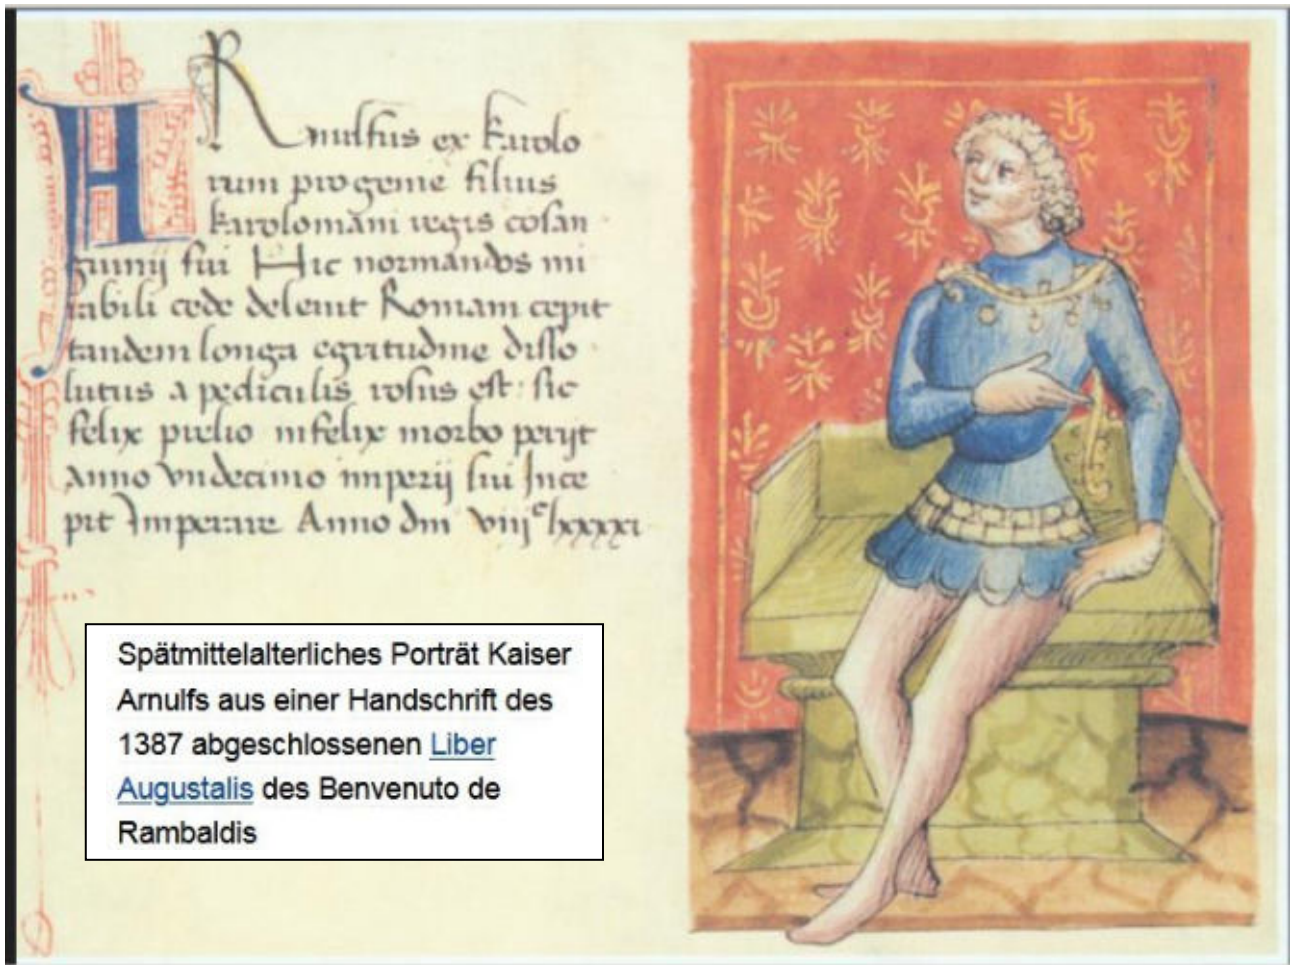 ARnulfus ex karolo
rum progenie filius
karolomani regis cosan
guinij sui Hic normandos mi
rabili cede delevit Romam cepit
tandem longa egritudine disso
lutus a pediculis rosus est: sic
felix prelio infelix morbo perijt
Anno vndecimo imperij sui Ince
pit Imperare Anno dm viijc lxxxxi
Spätmittelalterliches Porträt Kaiser
Arnulfs aus einer Handschrift des
1387 abgeschlossenen Liber
Augustalis des Benvenuto de
Rambaldis